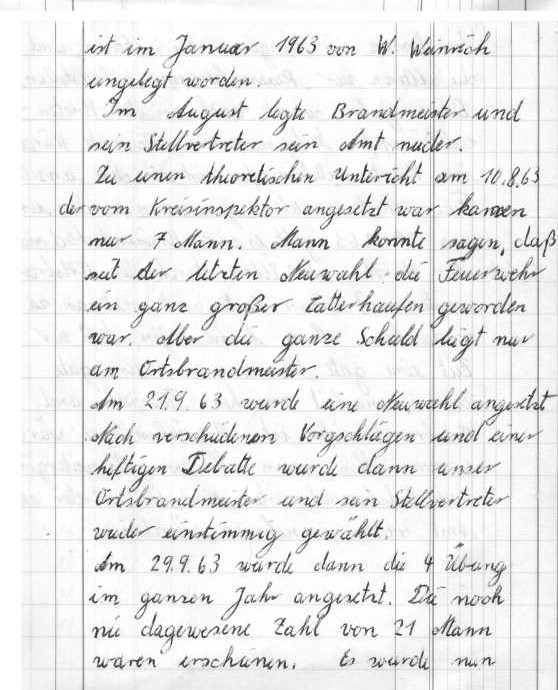 ist im Januar 1963 von W. Weinrich
eingelegt worden.
Im August legte Brandmeister und
sein Stellvertreter sein Amt nieder.
Zu einen theoretischen Unterricht am 10.8.63
der vom Kreisinspektor angesetzt war kamen
nur 7 Mann. Mann konnte sagen, daß
seit der letzten Neuwahl die Feuerwehr
ein ganz großer Latterhaufen geworden
war. Aber die ganze Schuld liegt nur
am Ortsbrandmeister.
Am 21.9.63 wurde eine Neuwahl angesetzt
Nach verschiedenen Vorgschlägen und einer
heftigen Debatte wurde dann unser
Ortsbrandmeister und sein Stellvertreter
wieder einstimmig gewählt.
Am 29.9.63 wurde dann die 4 Übung
im ganzen Jahr angesetzt. Die noch
nie dagewesene Zahl von 21 Mann
waren erschienen. Es wurde nun